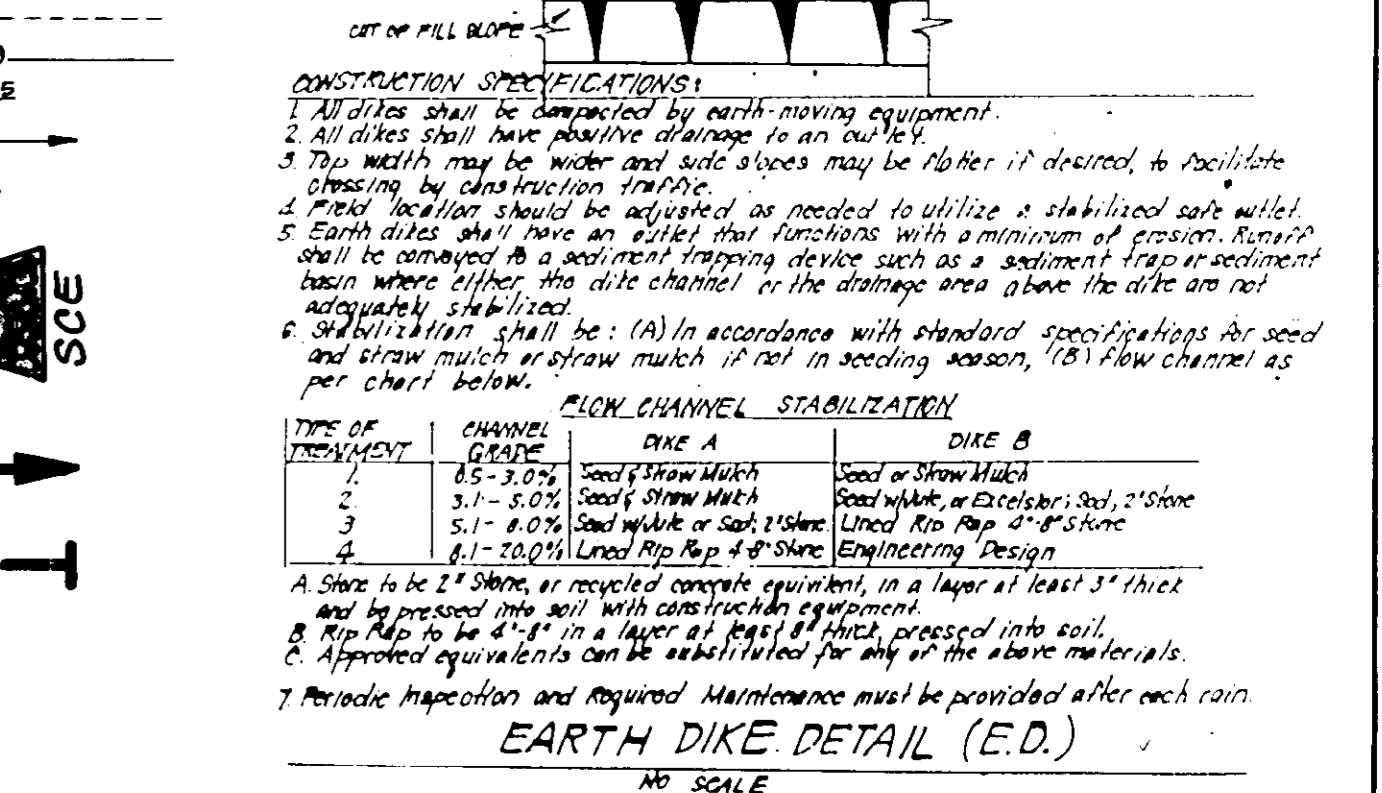 5
SCE
CUT OR FILL SLOPE
CONSTRUCTION SPECIFICATIONS:
1. All dikes shall be compacted by earth-moving equipment.
2. All dikes shall have positive drainage to an outlet.
3. Top width may be wider and side slopes may be flatter if desired, to facilitate
crossing by construction traffic.
4. Field location should be adjusted as needed to utilize a stabilized safe outlet.
5. Earth dikes shall have an outlet that functions with a minimum of erosion. Runoff
shall be conveyed to a sediment trapping device such as a sediment trap or sediment
basin where either the dike channel or the drainage area above the dike are not
adequately stabilized.
6. Stabilization shall be: (A) In accordance with standard specifications for seed
and straw mulch or straw mulch if not in seeding season, (B) flow channel as
per chart below.
FLOW CHANNEL STABILIZATION
TYPE OF TREATMENT CHANNEL GRADE DIKE A DIKE B
1. 0.5-3.0% Seed & Straw Mulch Seed or Straw Mulch
2. 3.1-5.0% Seed & Straw Mulch Seed w/Jute, or Excelsior; Sod, 2" Stone
3 5.1-8.0% Seed w/Jute or Sod; 2" Stone Lined Rip Rap 4"-8" Stone
4 8.1-20.0% Lined Rip Rap 4-8" Stone Engineering Design
A. Stone to be 2" Stone, or recycled concrete equivilent, in a layer at least 3" thick
and be pressed into soil with construction equipment.
B. Rip Rap to be 4"-8" in a layer at least 8" thick, pressed into soil.
C. Approved equivalents can be substituted for any of the above materials.
7. Periodic Inspection and Required Maintenance must be provided after each rain.
EARTH DIKE DETAIL (E.D.)
NO SCALE